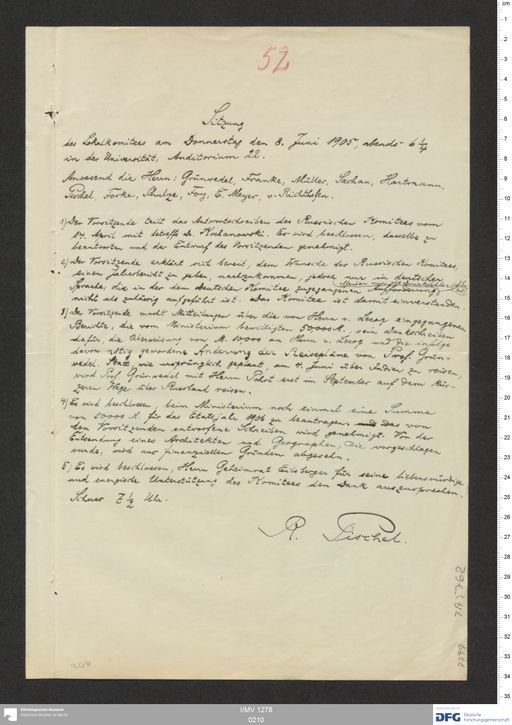 52
Sitzung
des Lokalkomitees am Donnerstag den 8. Juni 1905, abends 6 1/4
in der Universität, Auditorium 22.
Anwesend die Herrn: Grünwedel, Franke, Müller, Sachau, Hartmann,
Pischel, Forke, Schulze, Foy, E. Meyer, v. Richthofen.
1) Der Vorsitzende teilt das Antwortschreiben des Russischen Komitees vom
14. April mit betreffs Dr. Kochanowski. Es wird beschlossen, dasselbe zu
beantworten und der Entwurf des Vorsitzenden genehmigt.
2) Der Vorsitzende erklärt sich bereit, dem Wunsche des Russischen Komitees,
einen Jahresbericht zu geben, nachzukommen, jedoch nur in deutscher
Sprache, die in der dem deutschen Komitee zugegangenen Aufforderung
nicht als zulässig aufgeführt ist. Das Komitee ist damit einverstanden.
3) Der Vorsitzende macht Mitteilungen über die von Herrn v. Lecoq eingegangenen
Berichte, die vom Ministerium bewilligten 50000 M., sein Dankschreiben
dafür, die Überweisung von M. 10000 an Herrn v. Lecoq und die infolge
davon nötig gewordene Änderung der Reisepläne von Prof. Grün-
wedel. Statt, wie ursprünglich geplant, am 4. Juni über Indien zu reisen,
wird Prof. Grünwedel mit Herrn Pohrt erst im September auf dem kür-
zeren Wege über Russland reisen.
4) Es wird beschlossen, beim Ministerium noch einmal eine Summe
von 50000 M. für das Etatsjahr 1906 zu beantragen. Das von
dem Vorsitzenden entworfene Schreiben wird genehmigt. Von der
Entsendung eines Architekten und Geographen, die vorgeschlagen
wurde, wird aus finanziellen Gründen abgesehn.
5) Es wird beschlossen, Herrn Geheimrat Eilsberger für seine liebenswürdige
und energische Unterstützung des Komitees den Dank auszusprechen.
Schluss 7 1/2 Uhr.
R. Pischel.
Ethnologisches Museum
Staatliche Museen zu Berlin
I/MV 1278
0210
DFG Deutsche
Forschungsgemeinschaft